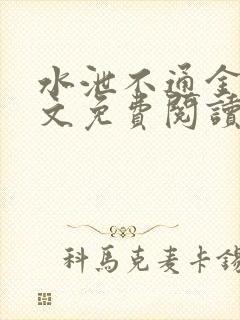 水泄不通全
文免費閱讀
科馬克麦卡錫